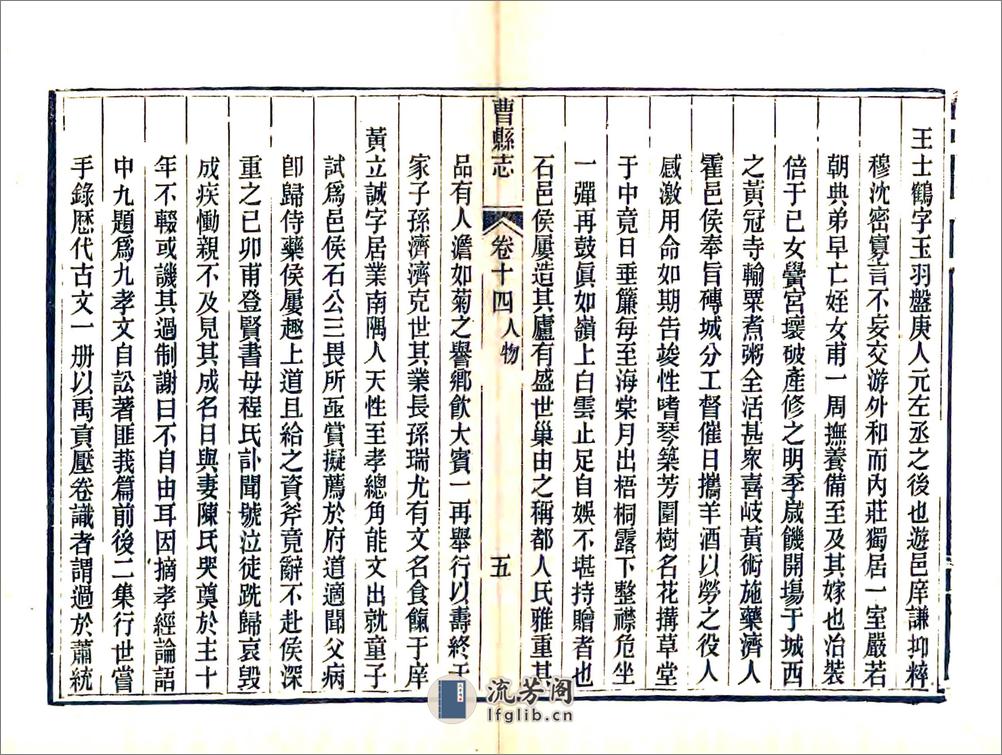 王士鶴字玉羽盤庚人元左丞之後也遊邑庠謙抑粹
穆沈密寡言不妄交游外和而內莊獨居一室嚴若
朝典弟早亡姪女甫一周撫養備至及其嫁也治裝
倍于已女黌宮壞破產修之明季歲饑開場于城西
之黃冠寺輸粟煮粥全活甚眾喜岐黃術施藥濟人
霍邑侯奉旨磚城分工督催日攜羊酒以勞之役人
感激用命如期告竣性嗜琴築芳園樹名花搆草堂
于中竟日垂簾每至海棠月出梧桐露下整襟危坐
一彈再鼓眞如嶺上白雲止足自娛不堪持贈者也
石邑侯屢造其廬有盛世巢由之稱都人氏雅重其
曹縣志
卷十四 人物
五
品有人澹如菊之譽鄉飮大賓一再舉行以壽終于
家子孫濟濟克世其業長孫瑞尤有文名食餼于庠
黃立誠字居業南隅人天性至孝總角能文出就童子
試爲邑侯石公三畏所亟賞擬薦於府道適聞父病
卽歸侍藥侯屢趣上道且給之資斧竟辭不赴侯深
重之已卯甫登賢書母程氏訃聞號泣徒跣歸哀毀
成疾慟親不及見其成名日與妻陳氏哭奠於主十
年不輟或譏其過制謝曰不自由耳因摘孝經論語
中九題爲九孝文自訟著匪莪篇前後二集行世嘗
手錄歷代古文一册以禹貢壓卷識者謂過於蕭統
流芳阁
lfglib.cn